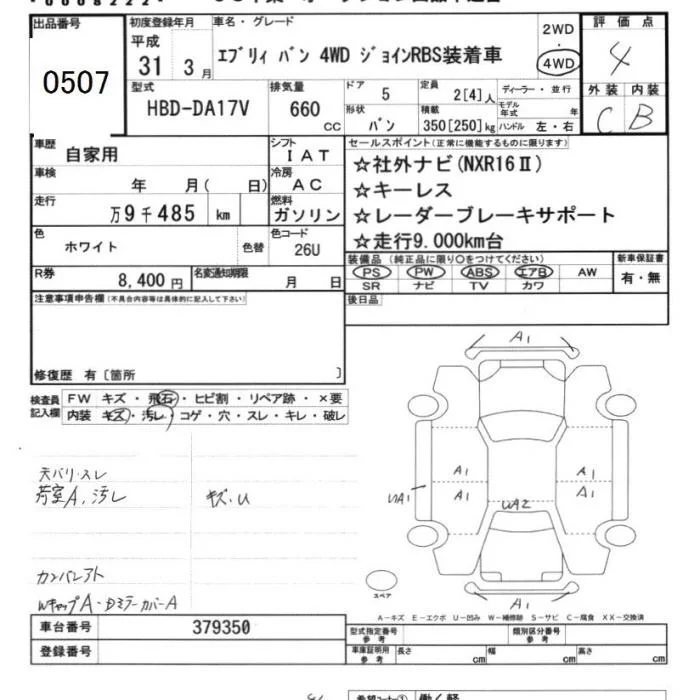 出品番号
0507
初度登録年月
平成
31 3月
車名・グレード
エブリィ バン 4WD ジョインRBS装着車
2WD
4WD
評価点
4
外装 内装
C B
型式
HBD-DA17V
排気量
660
cc
ドア
5
形状
バン
定員
2[4]人
積載
350[250]kg
ディーラー・並行
モデル年式 年
ハンドル 左・右
車歴
自家用
シフト
IAT
車検
年 月( 日)
冷房
AC
走行
万9千485 km
燃料
ガソリン
色
ホワイト
色替
色コード
26U
R券
8,400円
名変通知期限
月 日
セールスポイント(正常に機能するものに限ります)
☆社外ナビ(NXR16Ⅱ)
☆キーレス
☆レーダーブレーキサポート
☆走行9.000km台
装備品(純正品に限り○をつけてください)
PS PW ABS エアB AW
SR ナビ TV カワ
新車保証書
有・無
後日品
注意事項申告欄(不具合内容等は具体的に記入して下さい)
修復歴 有〔箇所 〕
検査員
記入欄
FW キズ・飛石・ヒビ割・リペア跡・×要
内装 キズ・汚レ・コゲ・穴・スレ・キレ・破レ
天バリ・スレ
荷室A,汚レ
キズ・U
カンバレアト
WキャップA・DミラーカバーA
A1
A1
A1
A1
A1
UA1
UA2
A1
スペア
A-キズ E-エクボ U-凹み W-補修跡 S-サビ C-腐食 XX-交換済
車台番号
379350
登録番号
型式指定番号
参考
類別区分番号
参考
車庫証明用
参考
長さ cm
幅 cm
高さ cm